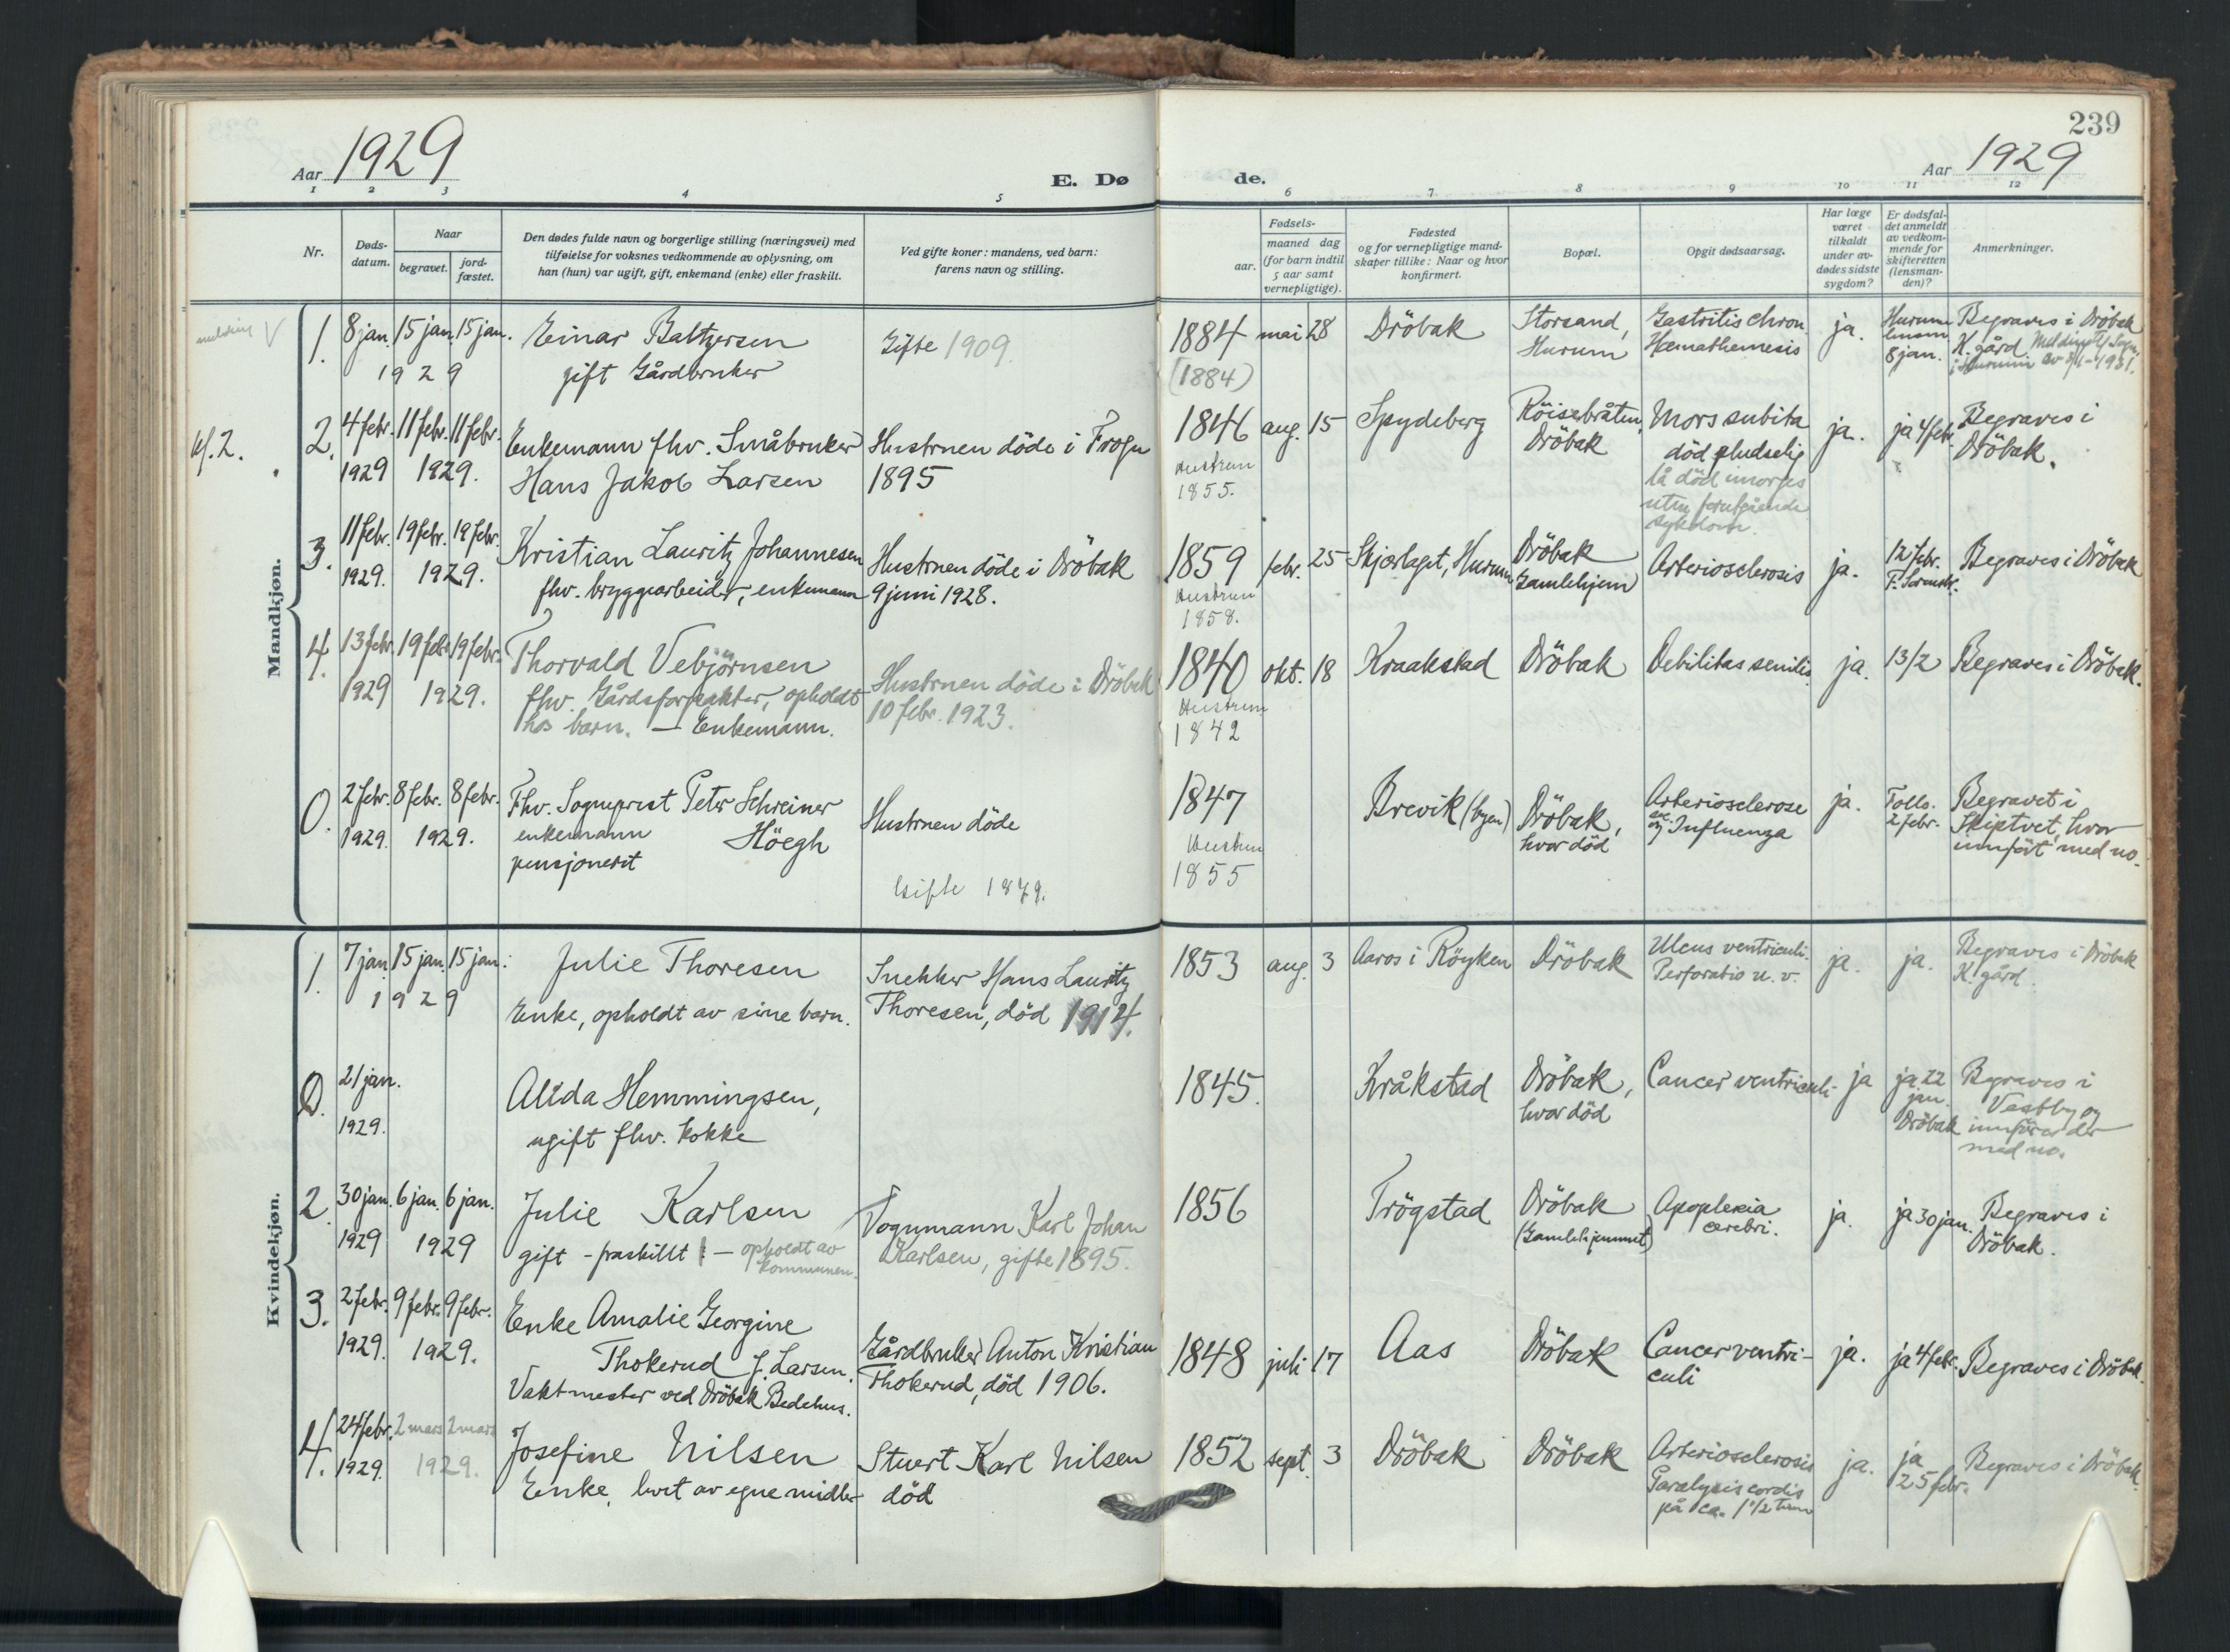 239
Aar 1929
E. Dø
de.
Aar 1929
1 2 3 4 5 6 7 8 9 10 11 12
Nr.
Døds-
datum.
Naar
begravet.
jord-
fæstet.
Den dødes fulde navn og borgerlige stilling (næringsvei) med
tilføielse for voksnes vedkommende av oplysning, om
han (hun) var ugift, gift, enkemand (enke) eller fraskilt.
Ved gifte koner: mandens, ved barn:
farens navn og stilling.
Fødsels-
aar.
maaned dag
(for barn indtil
5 aar samt
vernepligtige).
Fødested
og for vernepligtige mand-
skaper tillike: Naar og hvor
konfirmert.
Bopæl.
Opgit dødsaarsag.
Har læge
været
tilkaldt
under av-
dødes sidste
sygdom?
Er dødsfal-
det anmeldt
av vedkom-
mende for
skifteretten
(lensman-
den)?
Anmerkninger.
Mandkjøn.
1. 8 jan. 15 jan. 15 jan.
1929
Einar Baltzersen
gift Gårdbruker
Gifte 1909.
1884 mai 28
(1884)
Dröbak
Storsand,
Hurum
Gastritis chron.
Hæmathemesis
ja.
Hurum
lensm.
8 jan.
Begraves i Dröbak
K. gård.
2. 4 febr. 11 febr. 11 febr.
1929 1929.
Enkemann fhv. Småbruker
Hans Jakob Larsen
Hustruen döde i Frogn
1895
1846 aug. 15
Hustruen
1855.
Spydeberg
Röisebråten,
Dröbak
Mors subita
död pludselig
lå död imorges
uten forutgående
sykdom.
ja.
ja 4 febr.
Begraves i
Dröbak.
3. 11 febr. 19 febr. 19 febr.
1929. 1929.
Kristian Lauritz Johannesen
fhv. bryggearbeider, enkemann
Hustruen döde i Dröbak
9 juni 1928.
1859 febr. 25
Hustruen
1858.
Skjærlaget, Hurum
Dröbak
Gamlehjem
Arteriosclerosis
ja.
12 febr.
Begraves i Dröbak
4. 13 febr. 19 febr. 19 febr.
1929 1929.
Thorvald Vebjörnsen
fhv. Gårdsforpakter, opholdt
hos barn. — Enkemann.
Hustruen döde i Dröbak
10 febr. 1923.
1840 okt. 18
Hustruen
1842
Kraakstad
Dröbak
Debilitas senilis
ja.
13/2
Begraves i Dröbak.
0. 2 febr. 8 febr. 8 febr.
1929. 1929.
Fhv. Sogneprest Peter Schreiner
enkemann Höegh
pensjonert
Hustruen döde
Gifte 1879.
1847
Hustruen
1855
Brevik (byen)
Dröbak,
hvor död
Arteriosclerose
og Influenza
ja.
2 febr.
Begravet i
Skiptvet, hvor
innfört med no.
Kvindekjøn.
1. 7 jan. 15 jan. 15 jan.
1929
Julie Thoresen
Enke, opholdt av sine barn.
Snekker Hans Lauritz
Thoresen, död 1914.
1853 aug. 3
Aaros i Röyken
Dröbak
Ulcus ventriculi.
Perforatio u. v.
ja.
ja.
Begraves i Dröbak
K. gård.
0. 21 jan.
1929.
Alida Hemmingsen,
ugift fhv. kokke
1845.
Kråkstad
Dröbak,
hvor död
Cancer ventriculi
ja
ja 22
jan.
Dröbak
Begraves i
Vestby og
innföres der
med no.
2. 30 jan. 6 jan. 6 jan.
1929 1929
Julie Karlsen
gift - fraskillt — opholdt av
kommunen.
Vognmann Karl Johan
Karlsen, gifte 1895.
1856
Trögstad
Dröbak
(Gamlehjemmet)
Apoplexia
cerebri.
ja.
ja 30 jan.
Begraves i
Dröbak.
3. 2 febr. 9 febr. 9 febr.
1929. 1929.
Enke Amalie Georgine
Thokerud f. Larsen.
Vaktmester ved Dröbak Bedehus.
Gårdbruker Anton Kristian
Thokerud, död 1906.
1848 juli 17
Aas
Dröbak
Cancer ventri-
culi
ja.
ja 4 febr.
Begraves i Dröbak.
4. 24 febr. 2 mars 2 mars
1929. 1929.
Josefine Nilsen
Enke, levet av egne midler
Stuert Karl Nilsen
död
1852 sept. 3
Dröbak
Dröbak
Arteriosclerosis
Paralysis cordis
på ca. 1 1/2 time
ja.
ja
25 febr.
Begraves i Dröbak.